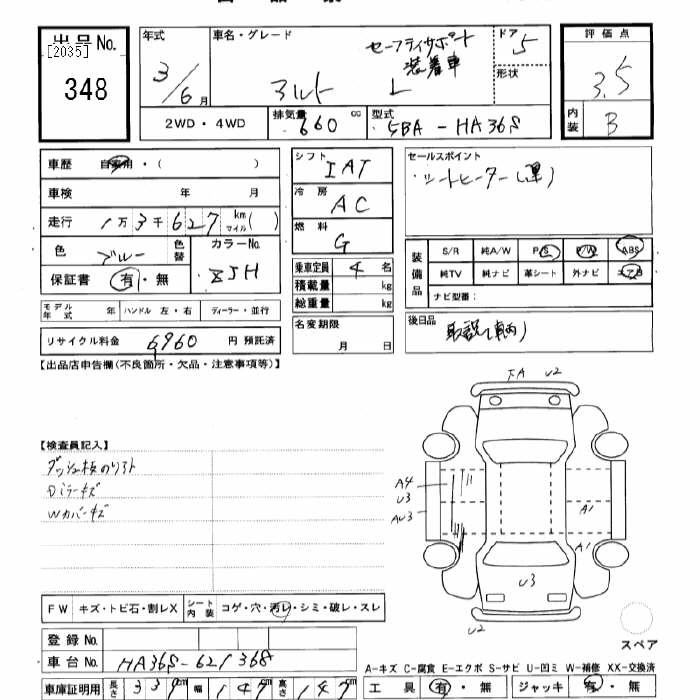 出品No.
[2035]
348
年式
3/6月
車名・グレード
アルト L
セーフティサポート
装着車
ドア 5
形状
2WD・4WD
排気量 660 cc
型式 5BA-HA36S
評価点
3.5
内装 B
車歴 自家用・( )
車検 年 月
走行 1万3千627 km マイル( )
色 ブルー 色替
カラーNo. ZJH
保証書 有・無
モデル年式 年 ハンドル 左・右 ディーラー・並行
リサイクル料金 6960 円 預託済
シフト IAT
冷房 AC
燃料 G
乗車定員 4 名
積載量 kg
総重量 kg
名変期限
月 日
セールスポイント
・シートヒーター(運)
装備品
S/R 純A/W P/S P/W ABS
純TV 純ナビ 革シート 外ナビ エアB
ナビ型番:
後日品
取説(車内)
【出品店申告欄(不良箇所・欠品・注意事項等)】
【検査員記入】
Dミラーキズ
Wカバーキズ
A U2
A4
U3
AU3
A1
A1
U3
U2
FW キズ・トビ石・割レX シート内装 コゲ・穴・汚レ・シミ・破レ・スレ
スペア
登録No.
車台No. HA36S-621368
A-キズ C-腐食 E-エクボ S-サビ U-凹ミ W-補修 XX-交換済
車庫証明用 長さ 339cm 幅 147cm 高さ 147cm
工具 有・無 ジャッキ 有・無